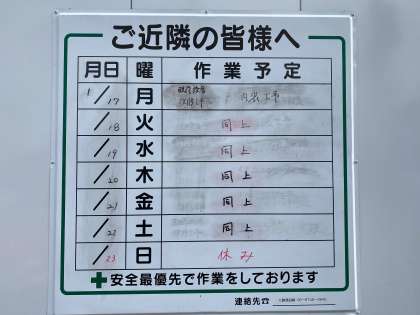 ご近隣の皆様へ
月日 曜 作業予定
1/17 月 内装工事
/18 火 同上
/19 水 同上
/20 木 同上
/21 金 同上
/22 土 同上
/23 日 休み
安全最優先で作業をしております
連絡先☎